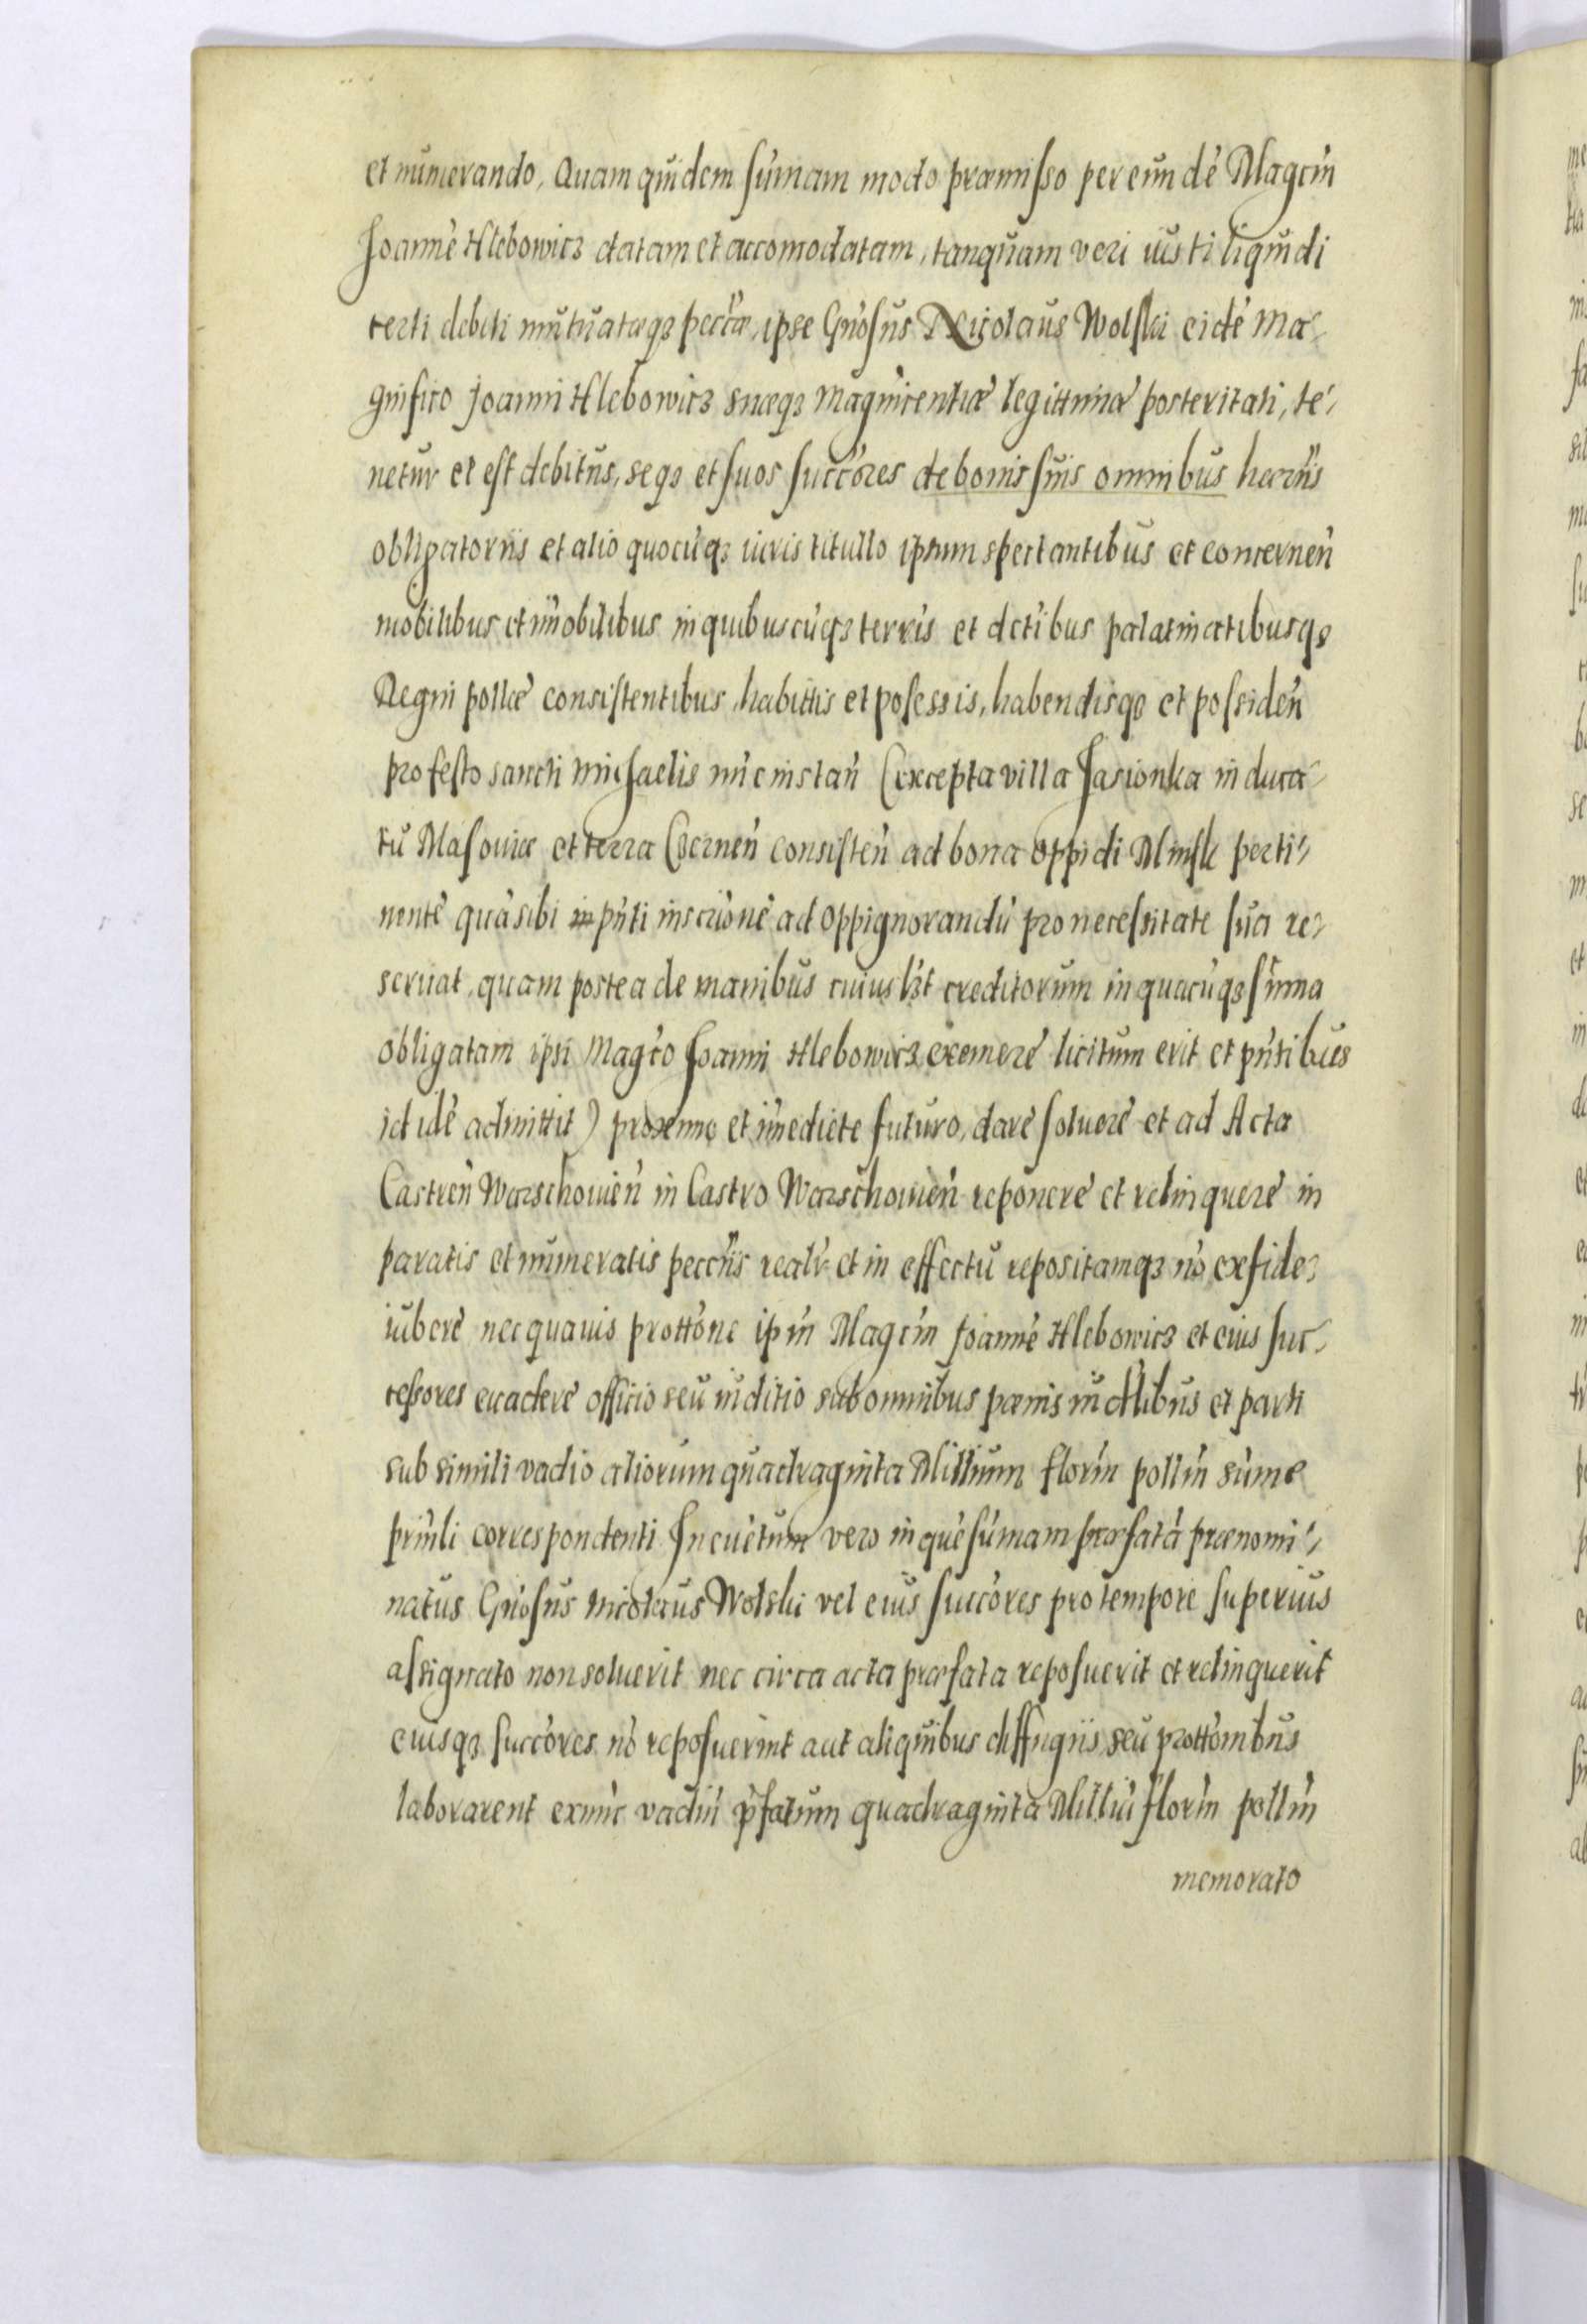 et numerando, Quam quidem sum̄am modo præmisso per eundē Magcm̄
Joannē Hlebowicz datam et accomodatam, tanquam veri iusti liquidi
certi debiti mutuatæqꝫ peccǣ, ipse Gn̄osus Nicolaus Wolski eidē Ma-
gnifico Joanni Hlebowicz suæqꝫ Magn̄icentiæ legittimæ posteritati, te-
netur et est debitus, seqꝫ et suos succ̄ores de bonis suis omnibus hæred̄iis
obligatoriis et alio quocūqꝫ iuris titullo ipsum spectantibus et concernen̄
mobilibus et im̄obilibus in quibuscūqꝫ terris et dctībus palatinatibusqꝫ
Regni pollǣ consistentibus, habittis et posessis, habendisqꝫ et possiden̄
pro festo sancti Michaelis nūc instan̄ (excepta villa Jasionka in duca-
tu Masouiæ et terra Czernen̄ consisten̄ ad bona oppidi Minsk perti-
nentē quā sibi in pn̄ti inscrīonē ad oppignorandū pro necessitate sua re-
seruat, quam postea de manibus cuiuslꝫt creditorum in quacūqꝫ sum̄a
obligatam ipsi Magc̄o Joanni Hlebowicz eximere licitum erit et pn̄tibus
id idē admittit) proximo et im̄ediete futuro, dare soluere et ad Acta
Castren̄ Warschouien̄ in Castro Warschouien̄ reponere et relinquere in
paratis et numeratis peccn̄iis realr̄ et in effectu repositamqꝫ nō exfide-
iubere nec quauis prottōne ipm̄ Magcm̄ Joannē Hlebowicz et eius suc-
cessores euadere officio seu iuditio sub omnibus pœnis iudc̄ilibus et parti
sub simili vadio aliorum quadraginta Millium florm̄ pollm̄ sum̄e
prin̄li correspondenti. In euētum vero in quē sum̄am præfatā prænomi-
natus Gn̄osus Nicolaus Wolski vel eius succ̄ores pro tempore superius
assignato non soluerit nec circa acta præfata reposuerit et relinquerit
eiusqꝫ succ̄ores nō reposuerint aut aliquibus diffugiis seu prottōnibus
laborarent extunc vadiū p̄fatum quadraginta Milliū florm̄ pollm̄
memorato